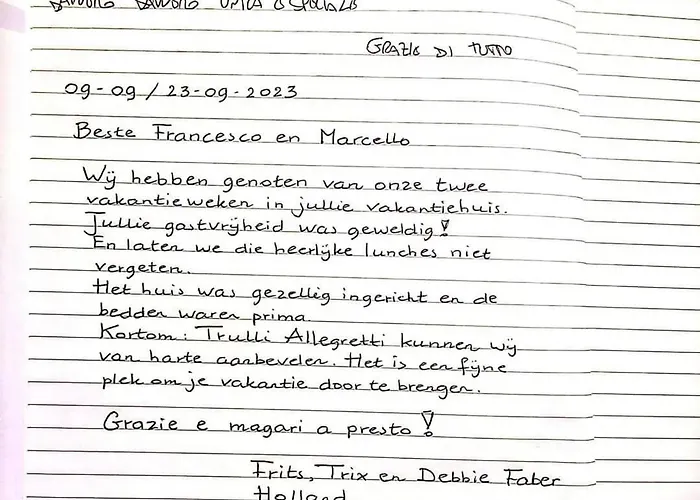 DAVVERO DAVVERO UNICA E SPECIALE
GRAZIE DI TUTTO
09-09 / 23-09-2023
Beste Francesco en Marcello
Wij hebben genoten van onze twee
vakantieweken in jullie vakantiehuis.
Jullie gastvrijheid was geweldig!
En laten we die heerlijke lunches niet
vergeten.
Het huis was gezellig ingericht en de
bedden waren prima.
Kortom: Trulli Allegretti kunnen wij
van harte aanbevelen. Het is een fijne
plek om je vakantie door te brengen.
Grazie e magari a presto!
Frits, Trix en Debbie Faber
Holland